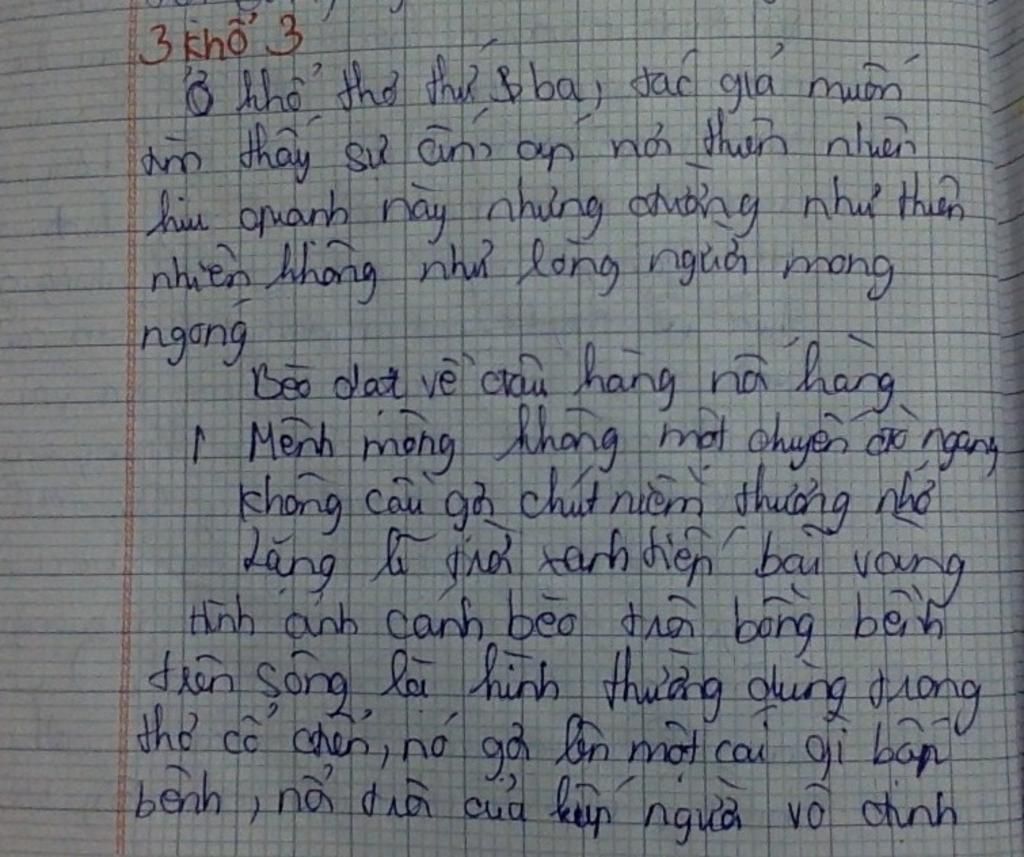 3 khổ 3
Ở khổ thơ thứ ba, tác giả muốn
tìm thấy sự ấm áp nơi thiên nhiên
hiu quanh này nhưng dường như thiên
nhiên không như lòng người mong
ngóng
Bèo dạt về đâu hàng nối hàng
Mênh mông không một chuyến đò ngang
Không cầu gợi chút niềm thương nhớ
Lặng lẽ trời xanh tiếp bãi vàng
Hình ảnh cánh bèo trôi bồng bềnh
trên sông là hình thường dùng trong
thơ cổ điển, nó gợi lên một cái gì bấp
bênh, nổi trôi của kiếp người vô định